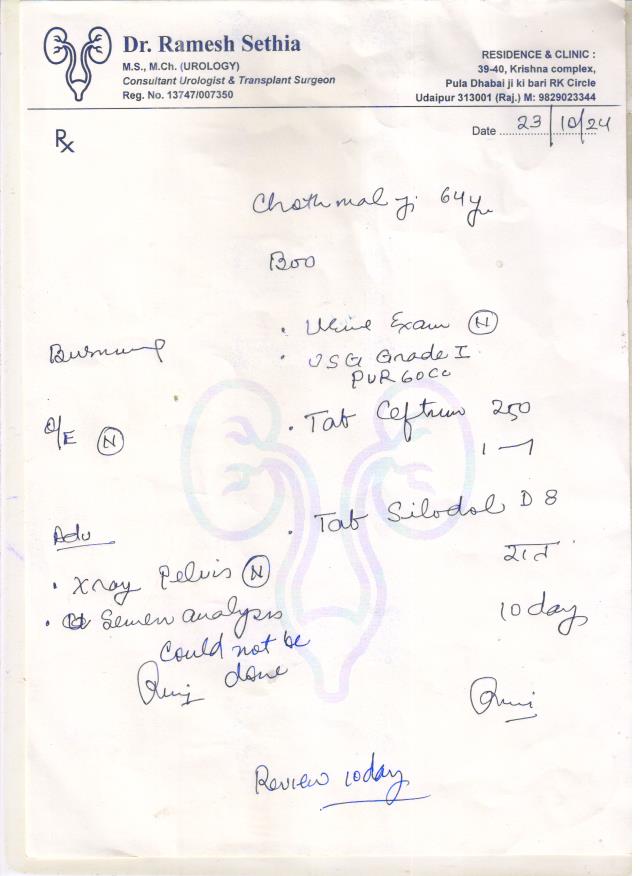 Dr. Ramesh Sethia
M.S., M.Ch. (UROLOGY)
Consultant Urologist & Transplant Surgeon
Reg. No. 13747/007350
RESIDENCE & CLINIC :
39-40, Krishna complex,
Pula Dhabai ji ki bari RK Circle
Udaipur 313001 (Raj.) M: 9829023344
Date 23/10/24
Rx
Chothmal ji 64 yr
BOO
• Urine Exam (N)
Burning
• USG Grade I
PVR 60cc
O/E (N)
• Tab Ceftum 250
1—1
• Tab Silodal D 8
रात
10 day
Adv
• Xray Pelvis (N)
• Semen analysis
could not be
done
Review 10day